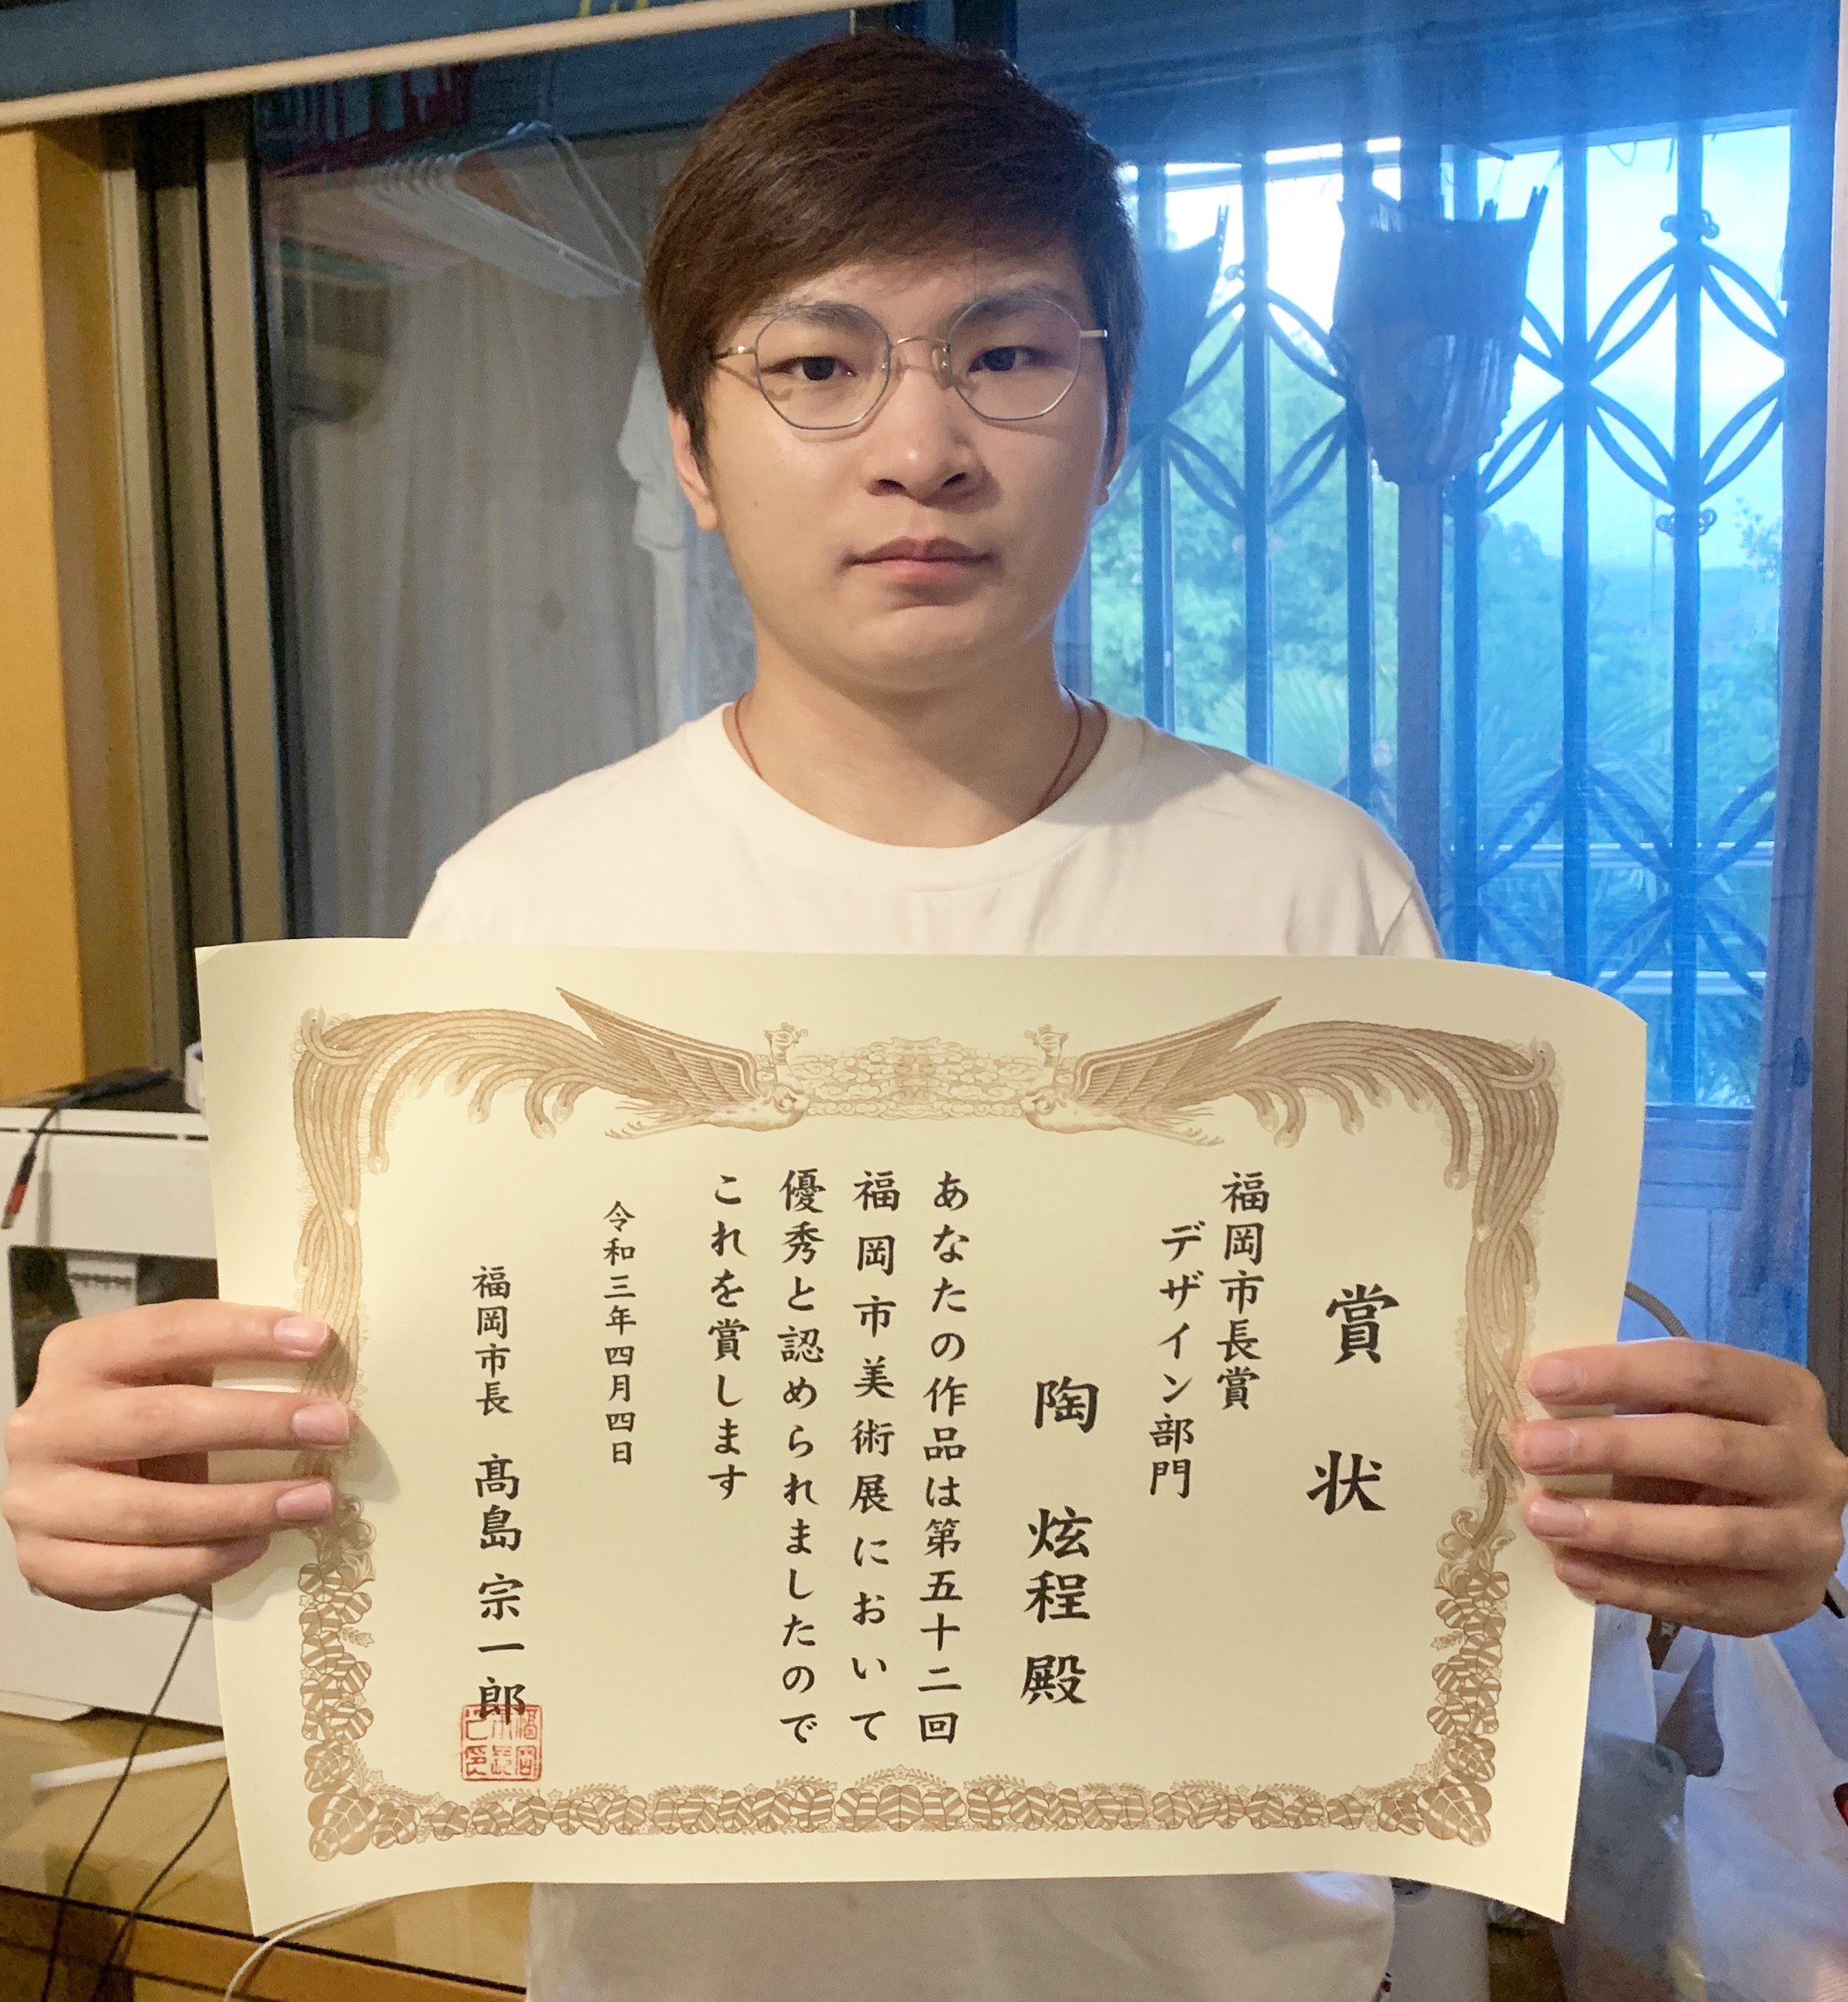 賞状
福岡市長賞
デザイン部門
陶 炫程 殿
あなたの作品は第五十二回
福岡市美術展において
優秀と認められましたので
これを賞します
令和三年四月四日
福岡市長 髙島宗一郎
福岡市長之印